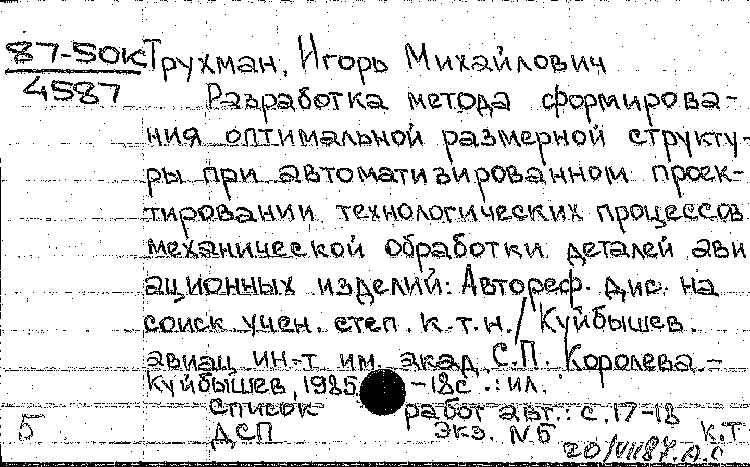 87-50к Трухман, Игорь Михайлович
4587
Разработка метода формирова-
ния оптимальной размерной структу-
ры при автоматизированном проек-
тировании технологических процессов
механической обработки деталей ави
ационных изделий: Автореф. дис. на
соиск учен. степ. к.т.н. / Куйбышев.
авиац ин-т им. акад. С.П. Королева.-
Куйбышев, 1985 -18с .: ил.
Список работ авт.: с.17-18
5 ДСП Экз. №6 К.Т.
20/VII87.